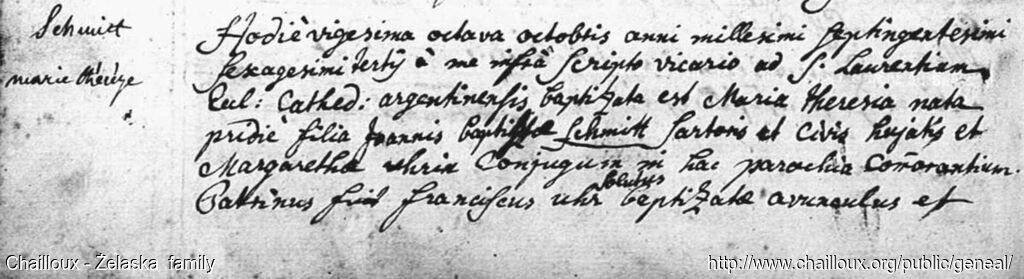 Schmitt
marie thérèze
Hodiè vigesima octava octobris anni millesimi septingentesimi
sexagesimi tertij à me infrà scripto vicario ad S. Laurentium
Eccl: Cathed: argentinensis baptizata est Maria theresia nata
pridiè filia Joannis baptistæ Schmitt Sartoris et Civis hujatis et
Margarethæ Uhrin Conjugum in hac parochia Com̄orantium.
solutus
Patrinus fuit franciscus Uhr baptizatæ avunculus et
Chailloux - Żelaska family
http://www.chailloux.org/public/geneal/